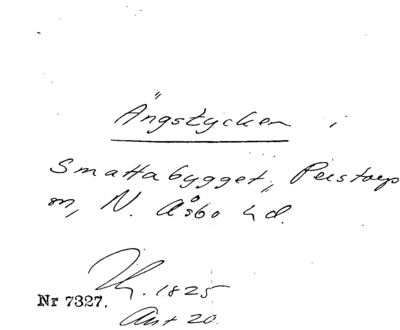 Ängstycken i
Smattabygget, Perstorp
sn, N. Åsbo hd.
1825
Nr 7327.
20